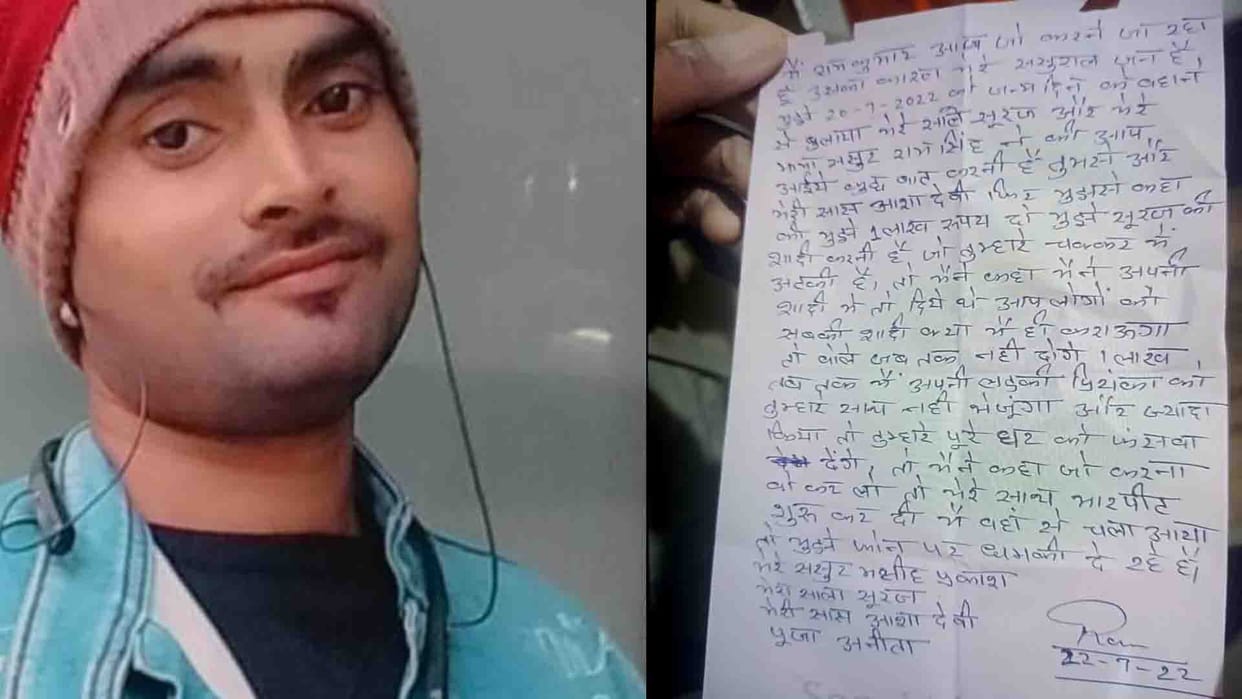 मैं रामकुमार आज जो करने जा रहा
हूँ उसका कारण मेरे ससुराल जन है
मुझे 20-7-2022 को जन्मदिन के बहाने
से बुलाया मेरे साले सूरज और मेरे
मामा ससुर रामसिंह ने की आप
आईये कुछ बात करनी है तुमसे और
मेरी सास आशा देवी फिर मुझसे कहा
की मुझे 1 लाख रुपय दो मुझे सूरज की
शादी करनी है जो तुम्हारे चक्कर में
अटकी है, तो मैंने कहा मैंने अपनी
शादी में तो दिये थे आप लोगों को
सबकी शादी क्या मैं ही कराऊगा
तो बोले जब तक नही दोगे 1 लाख
तब तक मैं अपनी लड़की प्रियंका को
तुम्हारे साथ नही भेजूंगा और ज्यादा
किया तो तुम्हारे पूरे घर को फंसवा
देंगे, तो मैंने कहा जो करना
वो कर लो तो मेरे साथ मारपीट
शुरू कर दी मैं वहां से चला आया
तो मुझे फोन पर धमकी दे रहे हैं।
मेरे ससुर मसीह प्रकाश
मेरा साला सूरज
मेरी सास आशा देवी
पूजा अनीता
Ram
22-7-22